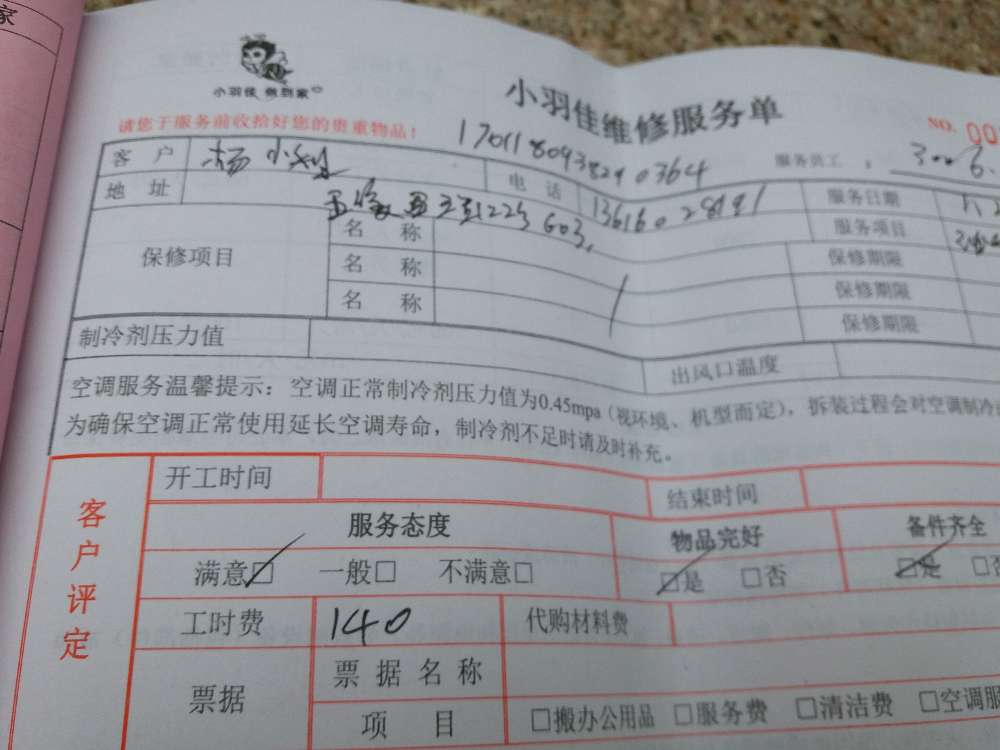 家
小羽佳 做到家
小羽佳维修服务单
请您于服务前收拾好您的贵重物品！
NO. 00
17011809382910364
服务员工： 3006
客 户 杨小
电 话 13616028191
服务日期
地 址 223 603
服务项目
保修项目
名 称
保修期限
名 称
保修期限
名 称
保修期限
制冷剂压力值
出风口温度
空调服务温馨提示：空调正常制冷剂压力值为0.45mpa（视环境、机型而定），拆装过程会对空调制冷
为确保空调正常使用延长空调寿命，制冷剂不足时请及时补充。
客户评定
开工时间
结束时间
服务态度
物品完好
备件齐全
满意□ 一般□ 不满意□
□是 □否
□是 □否
工时费 140
代购材料费
票据
票据名称
项 目
□搬办公用品 □服务费 □清洁费 □空调服